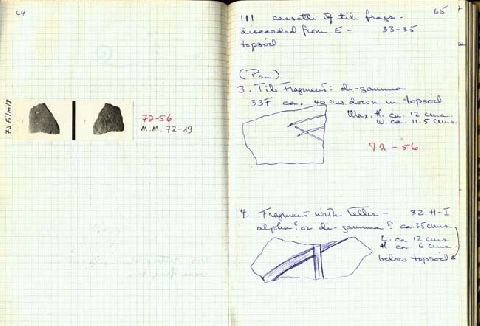 64
72-56
M.M. 72-29
65
111 cassette of tile frags.
discarded from E- 33-35
topsoil
3. Tile Fragment: de-gamma
33F ca. 40 cms down in topsoil
Max. H. ca. 12 cms.
W ca 11.5 cms.
72-56
4. Fragment with letter - 32 H-I
alpha? or de-gamma? ca 35 cms
L. ca 12 cms
H ca 6 cms
below topsoil